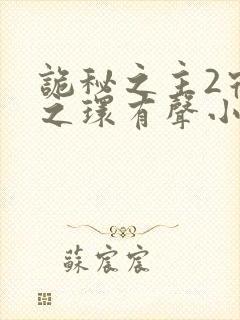 詭秘之主2
之環有聲小
蘇宸宸